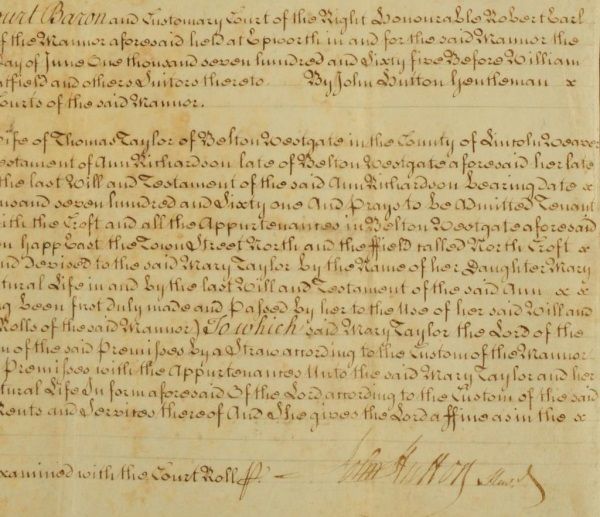 ourt Baron and Customary Court of the Right Honourable Robert Earl
of the Mannor aforesaid held at Epworth in and for the said Mannor the
Day of June One thousand seven hundred and Sixty five Before William
atfield and others Suitors thereto By John Hutton Gentleman x
Courts of the said Mannor.
Wife of Thomas Taylor of Belton Westgate in the County of Lincoln Weaver
estament of Ann Richardson late of Belton Westgate aforesaid her late
the last Will and Testament of the said Ann Richardson bearing date x
ousand seven hundred and Sixty one And Prays to be Admitted Tenant
with the Croft and all the Appurtenances in Belton Westgate aforesaid
on Happ East the Town Street North and the ffield called North Croft x
and Devised to the said Mary Taylor by the Name of her Daughter Mary
tural Life in and by the last Will and Testament of the said Ann x x
g been first duly made and Passed by her to the Use of her said Will and
Rolls of the said Mannor) To which said Mary Taylor the Lord of the
n of the said Premisses by a Straw according to the Custom of the Mannor
Premisses with the Appurtenances Unto the said Mary Taylor and her
tural Life In form aforesaid Of the Lord according to the Custom of the said
Rents and Services thereof And She gives the Lord a ffine as in the x
xamined with the Court Roll - John Hutton Stew.d